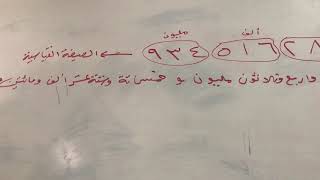 مليون ألف
الصيغة القياسية ٩٣٤ ٥١٦ ٢٨
واربع وثلاثون مليون و خمسمائة وستة عشر ألف ومائتين